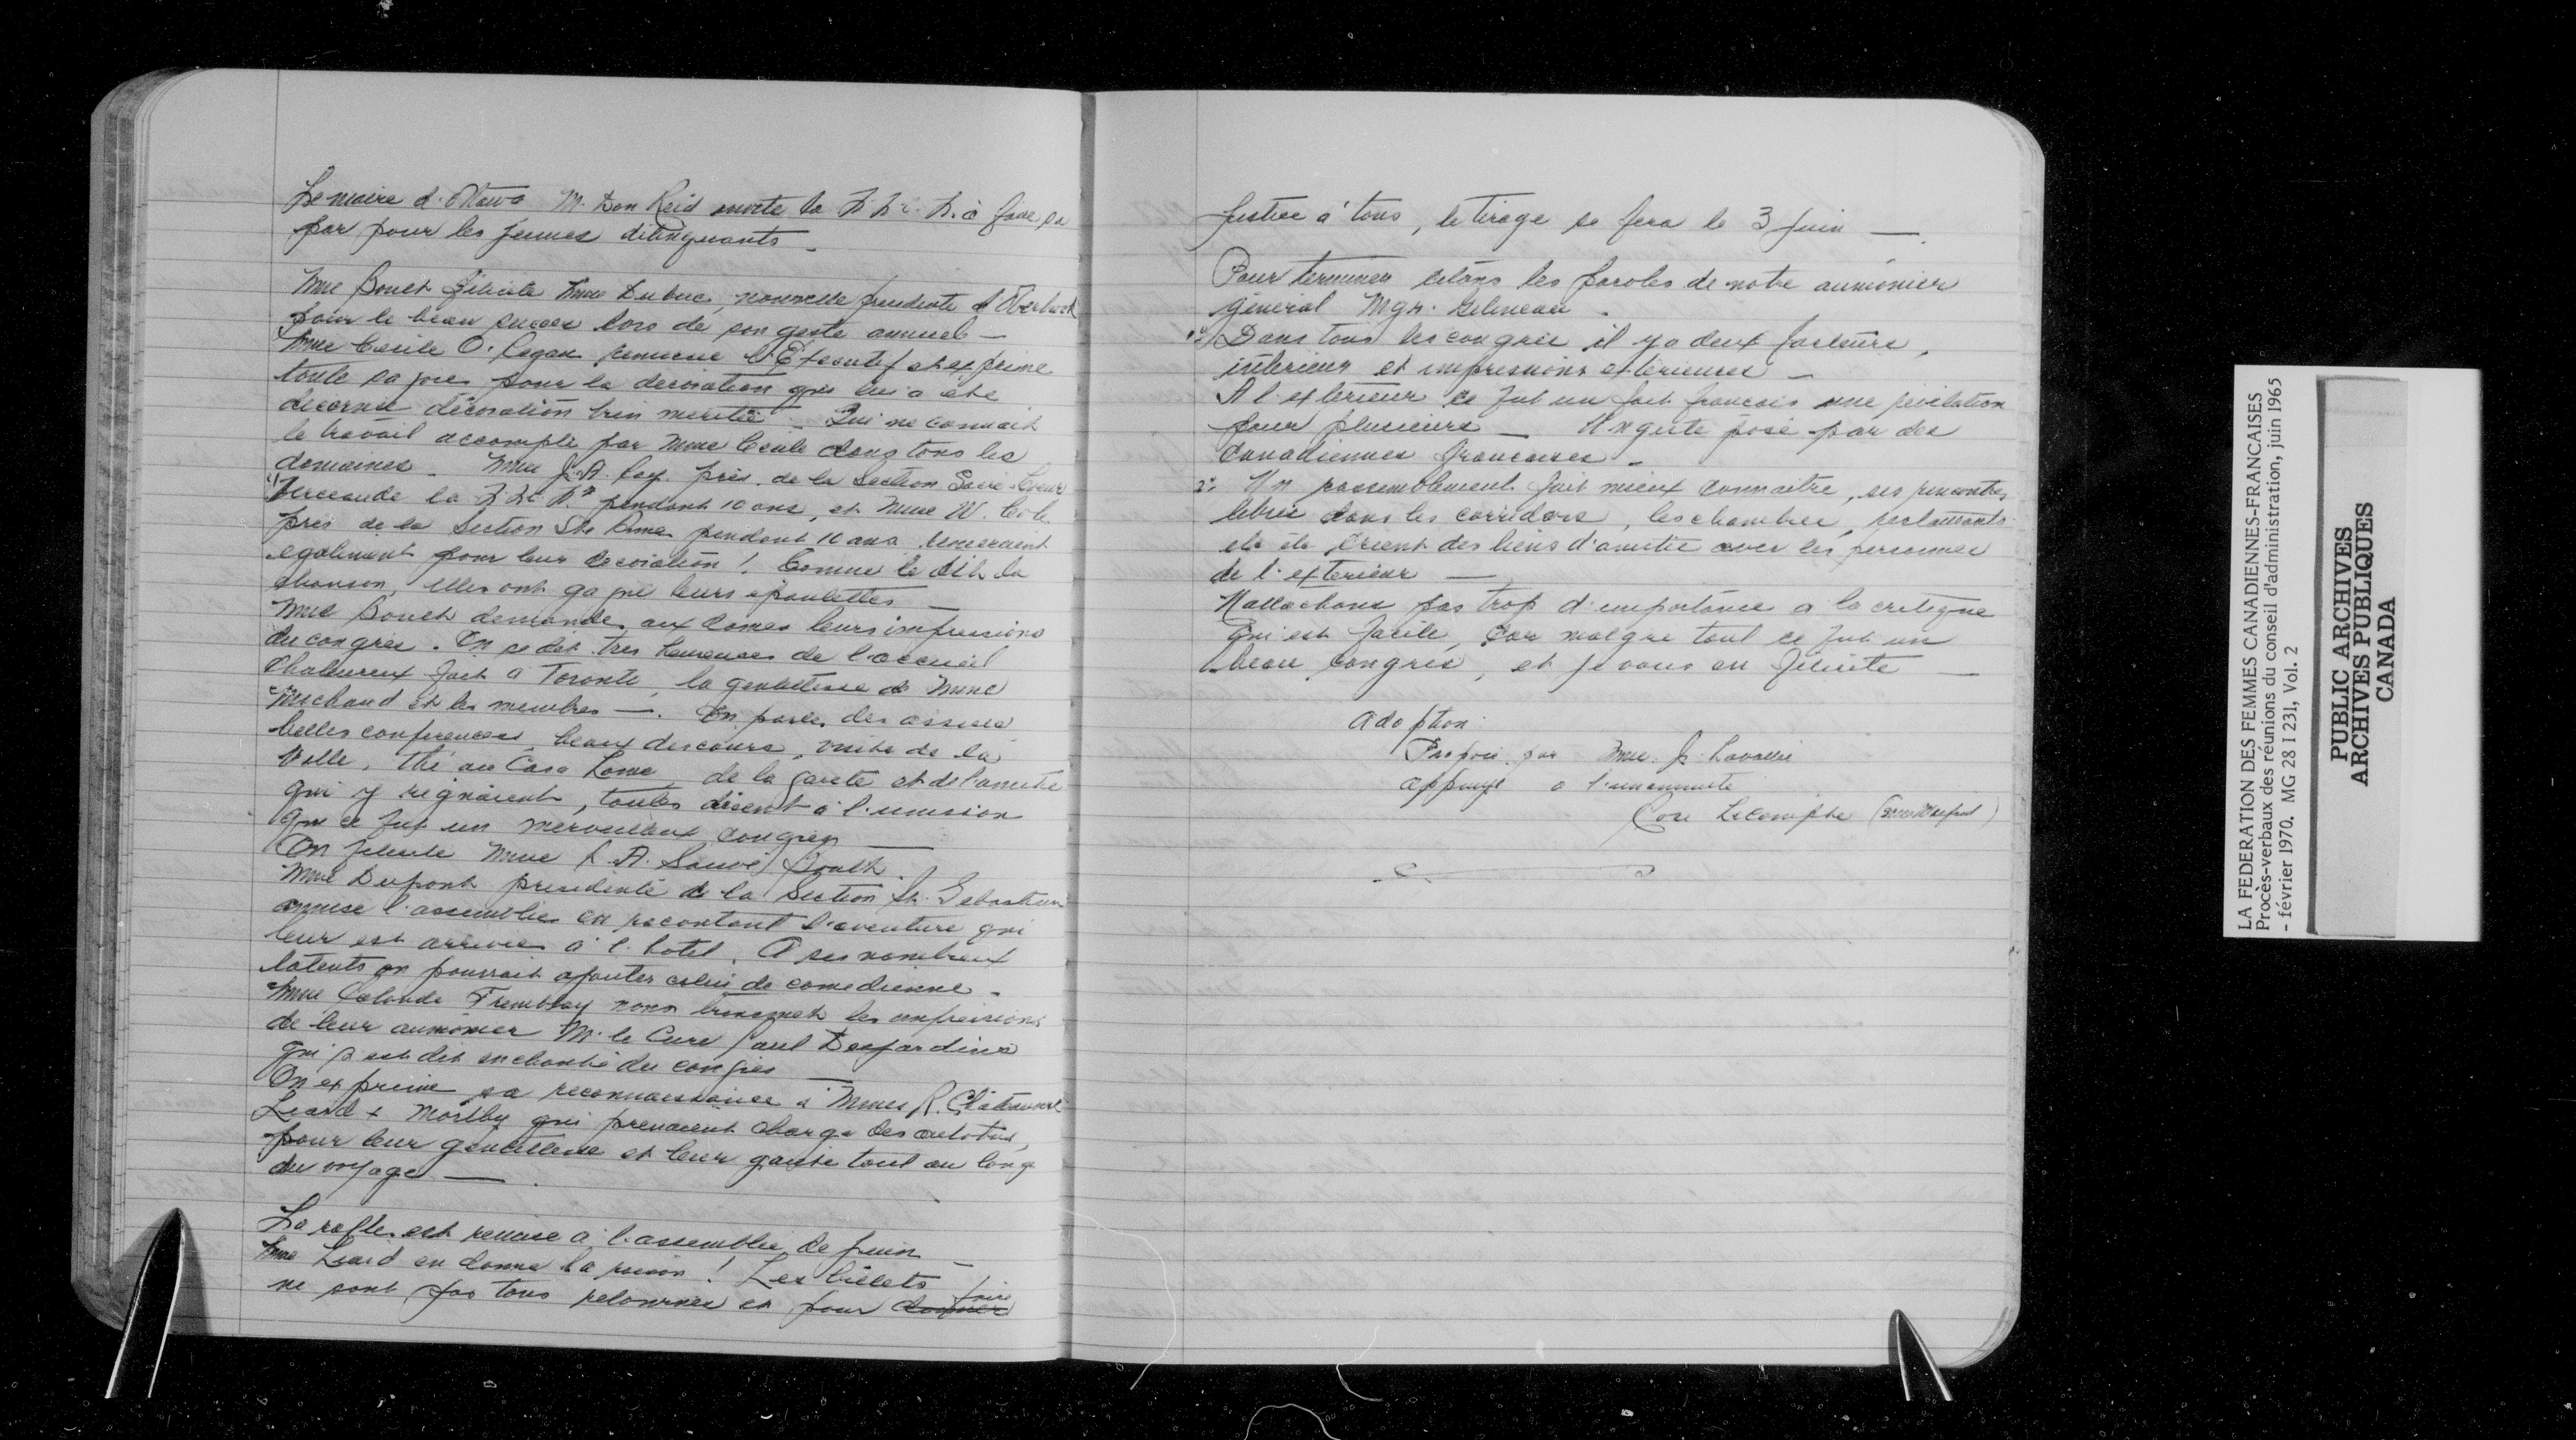 Le maire d'Ottawa M. Don Reid invite la F.F.C.F. à faire sa
par pour les jeunes délinquants
Mme Bouch félicite Mme Dubuc, nouvelle presidente d'Overbrook
pour le beau succes lors de son geste annuel —
Mme Cecile O. Regan remercie l'Executif et exprime
toute sa joie pour la decoration qui lui a été
decerné décoration bien meritée – Qui ne connait
le travail accompli par Mme Cecile dans tous les
domaines – Mme J.A. Roy. prés. de la Section Sacré-Coeur
pendant 10 ans, et Mme W.
pres de la Section Ste Anne pendant 10 ans remercient
egalement pour leur decoration! Comme le dit la
chanson, elles ont gagné leurs épaulettes —
Mme Bouch demande aux dames leurs impressions
du congrès. On se dit tres heureuses de l'accueil
chaleureux fait a Toronto, la gentillesse de Mme
Michaud et les membres —. On parle des assises
belles conferences, beaux discours, visite de la
Ville, thé au Casa Loma, de la gaieté et de l'amitié
qui y régnaient, toutes disent à l'unisson
que ce fut un merveilleux congres —
On felicite Mme L. A. Sauvé
Mme Dupont presidente de la Section St. Sebastien
amuse l'assemblée en racontant l'aventure qui
leur est arrivée à l'hotel. A ses nombreux
talents on pourrait ajouter celui de comedienne –
Mme Lalonde Tremblay nous transmet les impressions
de leur aumônier M. le Cure Paul Desjardins
qui s'est dit enchanté du congres —
On exprime sa reconnaissance à Mmes R. Châteauvert
Liard & Morlby qui prenaient charge des autobus,
pour leur gentillesse et leur gaieté tout au long
du voyage —
La rafle est remise à l'assemblée de Juin –
Mme Liard en donne la raison! Les billets
ne sont pas tous retournés et pour donner faire
Justice à tous, le tirage se fera le 3 Juin —
Pour terminer citons les paroles de notre aumônier
géneral Mgr. Gelineau –
1º Dans tous les congrès il y a deux facteurs,
intérieur et impressions extérieures –
A l'extérieur ce fut un fait francais une révélation
pour plusieurs – Un geste posé par des
Canadiennes francaises –
2º Un rassemblement fait mieux connaître, ses rencontres
libres dans les corridors, les chambres, restaurants
etc etc créent des liens d'amitié avec les personnes
de l'exterieur —
N'attachons pas trop d'importance a la critique
qui est facile, car malgre tout ce fut un
beau congrès, et je vous en félicite —
Adoption
Proposé par Mme. J. Lavallée
appuyé a l'unanimité
Cora Lecompte
LA FEDERATION DES FEMMES CANADIENNES-FRANCAISES
Procès-verbaux des réunions du conseil d'administration, juin 1965
- février 1970. MG 28 I 231, Vol. 2
PUBLIC ARCHIVES
ARCHIVES PUBLIQUES
CANADA